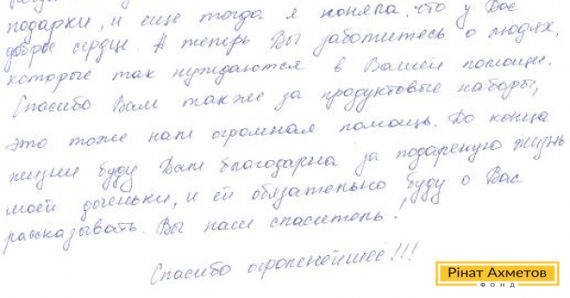 подарки, и еще тогда я поняла, что у Вас
доброе сердце. А теперь Вы заботитесь о людях,
которые так нуждаются в Вашей помощи.
Спасибо Вам также за продуктовые наборы,
это тоже нам огромная помощь. До конца
жизни буду Вам благодарна за подареную жизнь
моей доченьки, и ей обязательно буду о Вас
рассказывать. Вы наш спаситель!
Спасибо огромнейшее!!!
Рінат Ахметов
ФОНД